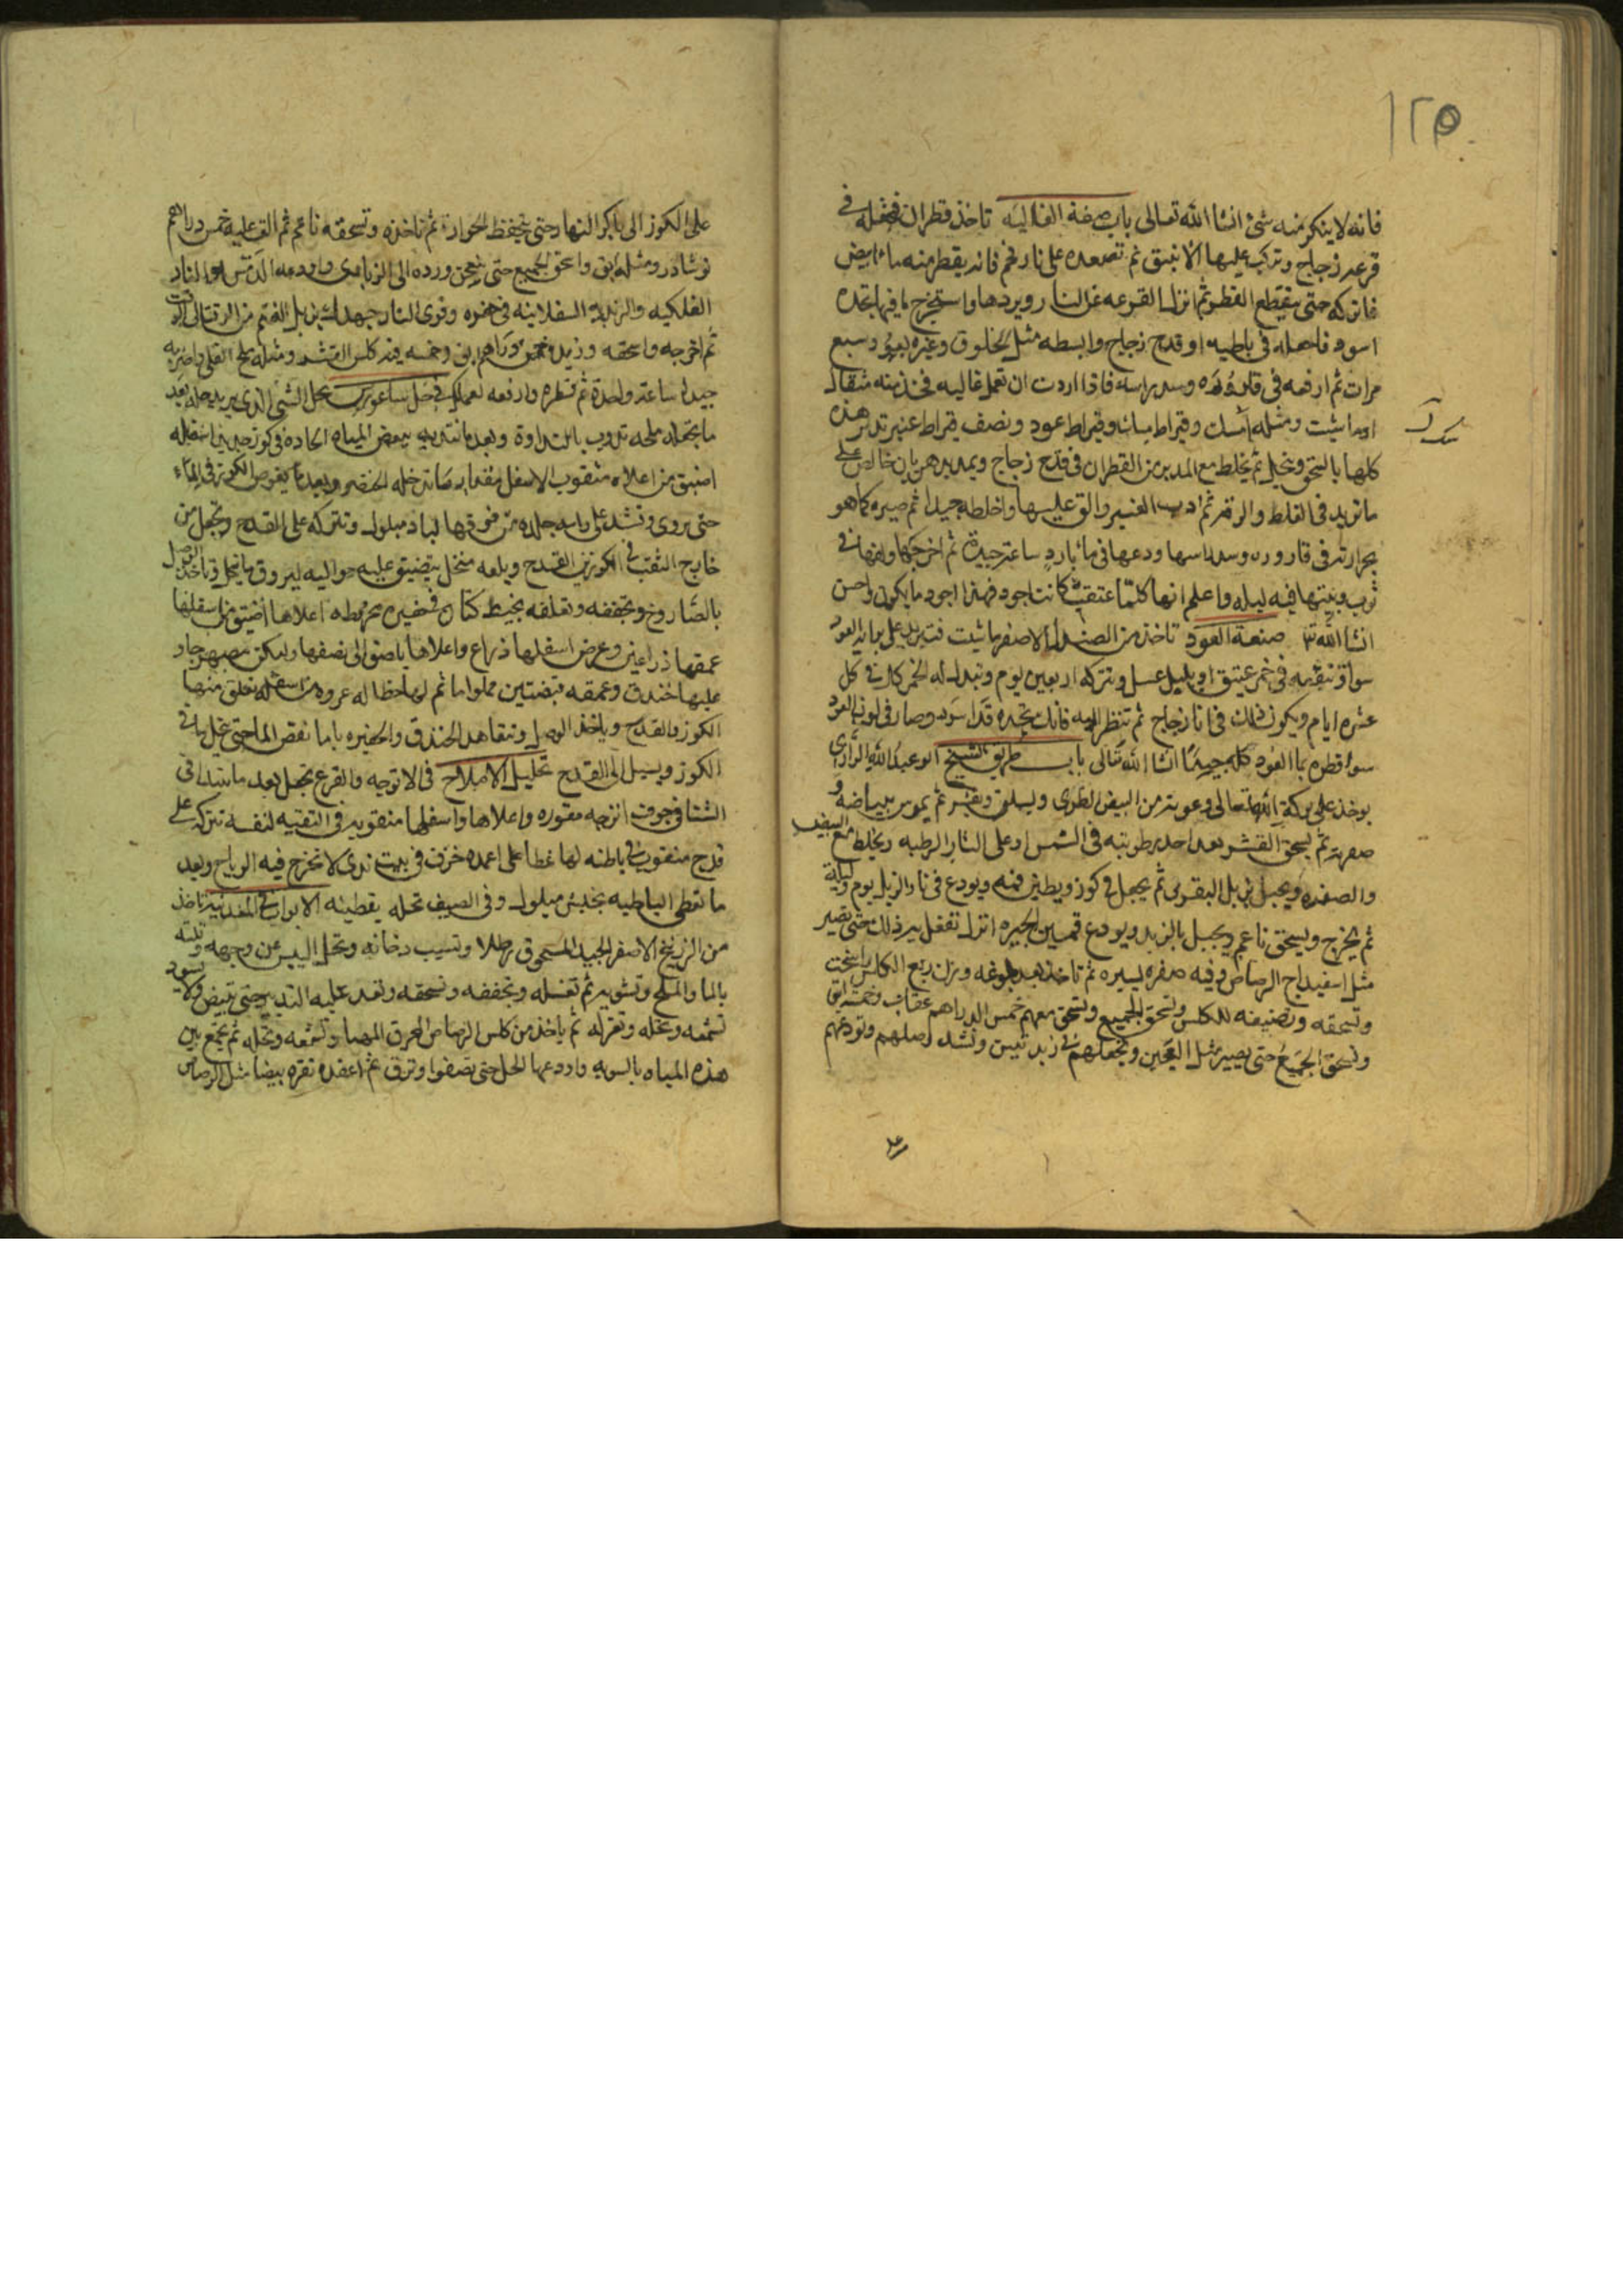 ١٢٥
فانه لا ينكر منه شئ انشا الله تعالى باب صفة الغاليه تاخذ قطران فتجعله في
قرعه زجاج وتركب عليها الانبيق ثم تصعده على نار فحم فانه يقطر منه ماء ابيض
فاتركه حتى ينقطع القطر ثم انزل القرعه عن النار وبردها واستخرج ما فيها تجده
اسود فاجعله في باطيه او قدح زجاج وابسطه مثل الخلوق وبخره بعود سبع
مرات ثم ارفعه في قاروره وسد راسه فاذا اردت ان تعمل غاليه فخذ منه مثقال
او ما شيت ومثله مسك وقيراط وقيراط عود ونصف قيراط عنبر تدبر هذه
كلها بالسحق ونخل ثم يخلط مع المدبر من القطران في قدح زجاج ويمد بدهن بان خالص على
ما تريد في الغلظ والرقه ثم اذب العنبر والق عليها واخلطه جيدا ثم صيره كما هو
بحرارته في قاروره وسد راسها ودعها في ماء بارد ساعة جيدة ثم اخرجها ولفها في
ثوب وبيتها فيه ليله واعلم انها كلما عتقت كانت اجود فهذا اجود ما يكون واحسن
انشا الله تع صنعة العود تاخذ من الصندل الاصفر ما شيت فتبريه على براية العود
سوا وتنقعه في خمر عتيق او بقليل عسل وتتركه اربعين يوم وتبدل له الخمر كل في كل
عشره ايام ويكون ذلك في انا زجاج ثم تنظر اليه فانك تجده قد اسود وصار في لون العود
سوا قطره بما العود كله جيدا انشا الله تعالى باب طريق الشيخ ابو عبد الله الرازي
يوخذ على بركة الله تعالى وعونه من البيض الطري ويسلق ويقشر ثم يبياضه و
صفرته ثم يسحق القشر بعد اخذ رطوبته في الشمس او على النار الرطبه ويخلط مع البيض
والصفره ويجبل بزبل البقر ثم يجعل في كوز ويطين فمه ويودع في نار الزبل يوم وليلة
ثم يخرج ويسحق ناعم ويجبل بالزبد ويودع قمين الجير تفعل به ذلك حتى يصير
مثل اسفيداج الرصاص وفيه صفره يسيره ثم تاخذ بعد بلوغه وزن ربع الكلس
وتسحقه وتضيفه للكلس وتسحق الجميع وتسحق معهم خمس الدراهم عقاب وخمسه ابق
وتسحق الجميع حتى يصير مثل العجين وتجعلهم في زبديتين وتشد وصلهم وتودعهم
على الكوز الى باكر النهار حتى تنحفظ الحرارة ثم تاخذه وتسحقه ناعم ثم الق عليه خمس دراهم
نوشادر ومثله ابق واسحق الجميع حتى ورده الى الزبادي واودعه النار
الفلكيه والزبدية السفلانيه في حفره وقوي النار جهدك بزبل الغنم من الوقت الى الوقت
ثم اخرجه واسحقه وزيده خمس دراهم ابق وخمسه من كلس القشر ومثله ملح القلي واضربه
جيدا ساعة واحدة ثم تقطره وارفعه لعملك في حل ساعتين تحل الشئ الذي يريد حله بعد
ما تجعله ملحه تذوب بالنداوة وبعد ما تنديه ببعض المياه الحاده في كوز جديد اسفله
اضيق من اعلاه مثقوب الاسفل مقدار ما تدخله الخنصر وبعد ما يغوص الكوز في الماء
حتى يروى وتشد على راسه جلده من فوقها لباد مبلول وتتركه على القدح وتجعل من
خارج الثقب في الكوز القدح وبلعه منخل يتضيق عليه حواليه ليروق ما ينحل وتاخذ الوصل
بالصاروخ وتجففه وتعلقه بخيط كتان في حفيره مخروطه اعلاها اضيق من اسفلها
عمقها ذراعين وعرض اسفلها ذراع واعلاها يا ضيق الى نصفها وليكن
عليها خندق وعمقه قبضتين مملوا ما ثم لها غطا له عروه من اسفله تعلق منها
الكوز والقدح وياخذ الوصل وتتعاهد الخندق والحفيره بالما نقص الما حتى ينحل ما في
الكوز ويسيل الى القدح تحليل الاملاح في الاترجه والقرع تجعل بعد ما تنديها في
الشتا في جوف اترجه مقوره واعلاها واسفلها مثقوبه في التقيه لنفسه تتركه على
قدح منقوب في باطنه لها غطا على اعمده خزف في بيت ندي لا تخرج فيه الرياح وبعد
ما تغطي الباطيه بخيش مبلول وفي الصيف تحله يقطينه الابواب في المغنيسيا تاخذ
من الزرنيخ الاصفر الجيد المسحوق رطلا وتسيب دخانه وتحل اليبس عن وجهه وتلته
بالما والملح وتشويه ثم تغسله وتجففه وتسحقه وتعيد عليه التدبير حتى تبيض ولا يسود
تشمعه وتحله وتعزله ثم ياخذ من كلس الرصاص المحرق المصدا وتشمعه وتحله ثم يجمع بين
هذه المياه بالسويه واودعها الحل حتى تصفوا وترق ثم اعقده نقره بيضا مثل الرصاص